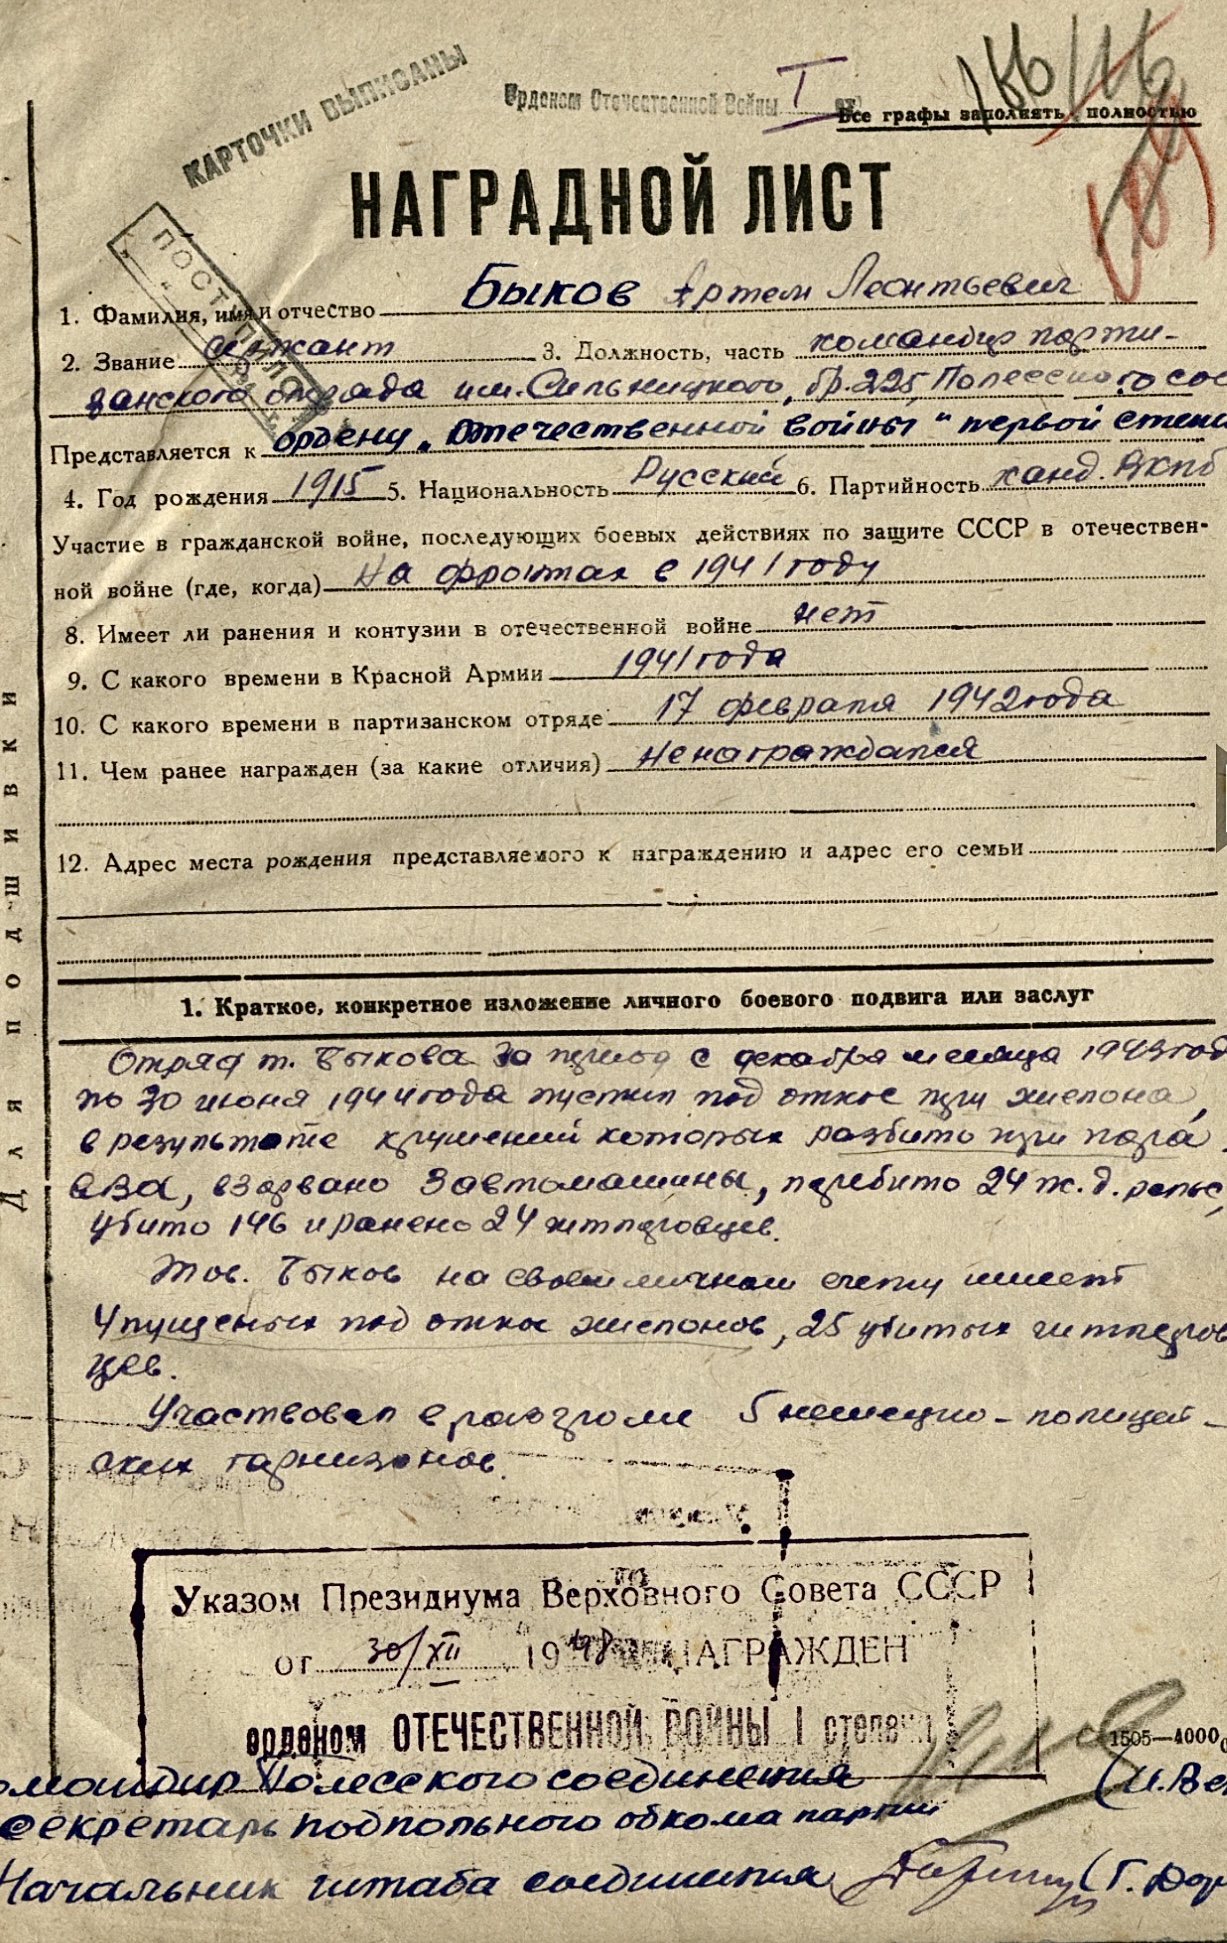 КАРТОЧКИ ВЫПИСАНЫ
Орденом Отечественной Войны I ст.
Все графы заполнять полностью
НАГРАДНОЙ ЛИСТ
1. Фамилия, имя и отчество Быков Артем Леонтьевич
2. Звание сержант 3. Должность, часть командир парти-
занского отряда им. Сильницкого, бр. 225, Полесского сое
Представляется к ордену „Отечественной войны" первой степ
4. Год рождения 1915 5. Национальность Русский 6. Партийность канд. ВКПб
Участие в гражданской войне, последующих боевых действиях по защите СССР в отечествен-
ной войне (где, когда) На фронтах в 1941 году
8. Имеет ли ранения и контузии в отечественной войне нет
9. С какого времени в Красной Армии 1941 года
10. С какого времени в партизанском отряде 17 февраля 1942 года
11. Чем ранее награжден (за какие отличия) Не награждался
12. Адрес места рождения представляемого к награждению и адрес его семьи
Для подшивки
1. Краткое, конкретное изложение личного боевого подвига или заслуг
Отряд т. Быкова за период с декабря месяца 1943 год
по 30 июня 1944 года пустил под откос три эшелона,
в результате крушений которых разбито три паро
воза, взорвано 3 автомашины, перебито 24 ж.д. рельс,
убито 146 и ранено 24 гитлеровцев.
Тов. Быков на своем личном счету имеет
4 пущеных под откос эшелонов, 25 убитых гитлеров
цев.
Участвовал в разгроме 5 немецко-полицей-
ских гарнизонов.
Указом Президиума Верховного Совета СССР
от 30/XII 1948 НАГРАЖДЕН
орденом ОТЕЧЕСТВЕННОЙ ВОЙНЫ I степени
1505—4000
омандир Полесского соединения (И. Ве
Секретарь подпольного обкома партии
Начальник штаба соединения (Г. Дор